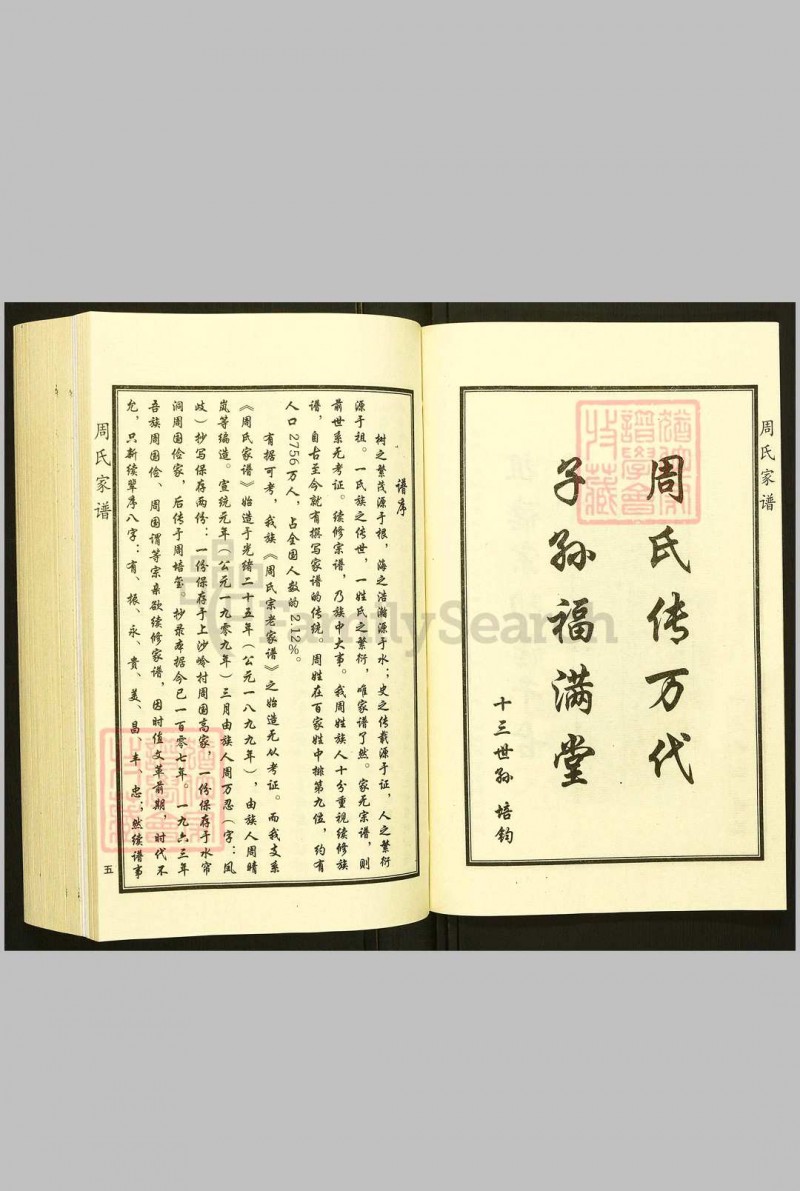 周氏家谱
周氏传万代
子孙福满堂
十三世孙 培钧
谱序
树之繁茂源于根，海之浩瀚源于水；史之传载源于证，人之繁衍
源于祖。一氏族之传世，一姓氏之繁衍，唯家谱了然。家无宗谱，则
前世系无考证。续修宗谱，乃族中大事。我周姓族人十分重视续修族
谱，自古至今就有撰写家谱的传统。周姓在百家姓中排第九位，约有
人口2756万人，占全国人数的2.12%。
有据可考，我族《周氏宗老家谱》之始造无从考证。而我支系
《周氏家谱》始造于光绪二十五年（公元一八九九年），由族人周晴
岚等编造。宣统元年（公元一九零九年）三月由族人周万忍（字：凤
岐）抄写保存两份：一份保存于上沙岭村周国高家，一份保存于水帘
洞周国俭家，后传于周培玺。抄录本据今已一百零七年。一九六三年
吾族周国俭、周国谓等宗亲欲续修家谱，因时值文革前期，时代不
允，只新续辈序八字：有、振、永、贵、美、昌、丰、忠；然续谱事
周氏家谱
五
FamilySearch